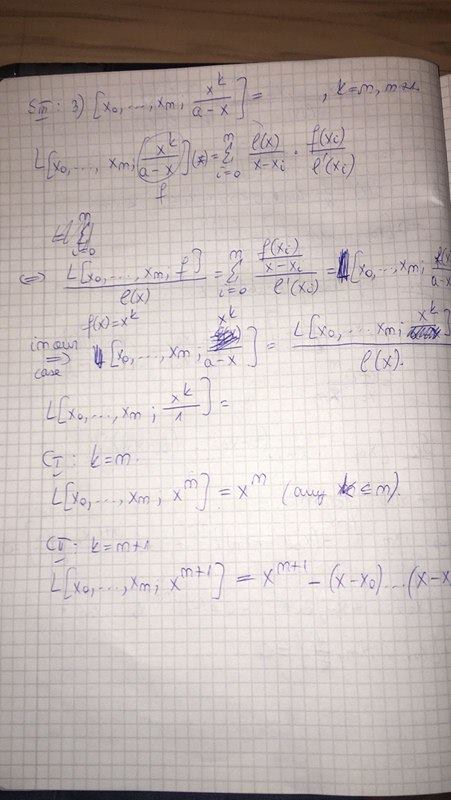 III: 3) [x₀, ..., xₘ; x^k/(a-x)] = , k=m, m+1
L[x₀, ..., xₘ; x^k/(a-x)](x) = Σ_{i=0}^{m} ℓ(x)/(x-xᵢ) · f(xᵢ)/ℓ'(xᵢ)
f
Σ_{i=0}^{m}
⇔ L[x₀, ..., xₘ; f]/ℓ(x) = Σ_{i=0}^{m} (f(xᵢ)/(x-xᵢ))/ℓ'(xᵢ) = [x₀, ..., xₘ;
f(x)=x^k
in our case ⇒ [x₀, ..., xₘ; x^k/(a-x)] = L[x₀, ..., xₘ; x^k]/ℓ(x).
L[x₀, ..., xₘ; x^k/1] =
CI: k=m.
L[x₀, ..., xₘ, x^m] = x^m (any k ≤ m).
CII: k=m+1
L[x₀, ..., xₘ; x^{m+1}] = x^{m+1} - (x-x₀)...(x-x